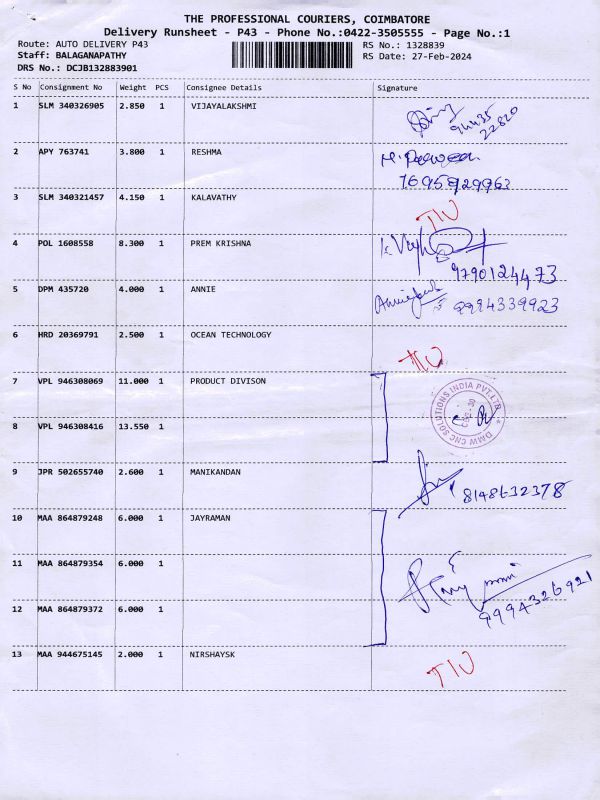 THE PROFESSIONAL COURIERS, COIMBATORE
Delivery Runsheet - P43 - Phone No.:0422-3505555 - Page No.:1
Route: AUTO DELIVERY P43
Staff: BALAGANAPATHY
DRS No.: DCJB132883901
RS No.: 1328839
RS Date: 27-Feb-2024
S No Consignment No Weight PCS Consignee Details Signature
1 SLM 340326905 2.850 1 VIJAYALAKSHMI
94435
22820
2 APY 763741 3.800 1 RESHMA
7695929963
3 SLM 340321457 4.150 1 KALAVATHY
4 POL 1608558 8.300 1 PREM KRISHNA
9790124473
5 DPM 435720 4.000 1 ANNIE
9994339923
6 HRD 20369791 2.500 1 OCEAN TECHNOLOGY
7 VPL 946308069 11.000 1 PRODUCT DIVISON
DMW CNC SOLUTIONS INDIA PVT.LTD
8 VPL 946308416 13.550 1
9 JPR 502655740 2.600 1 MANIKANDAN
8148632378
10 MAA 864879248 6.000 1 JAYRAMAN
11 MAA 864879354 6.000 1
12 MAA 864879372 6.000 1
9994326921
13 MAA 944675145 2.000 1 NIRSHAYSK